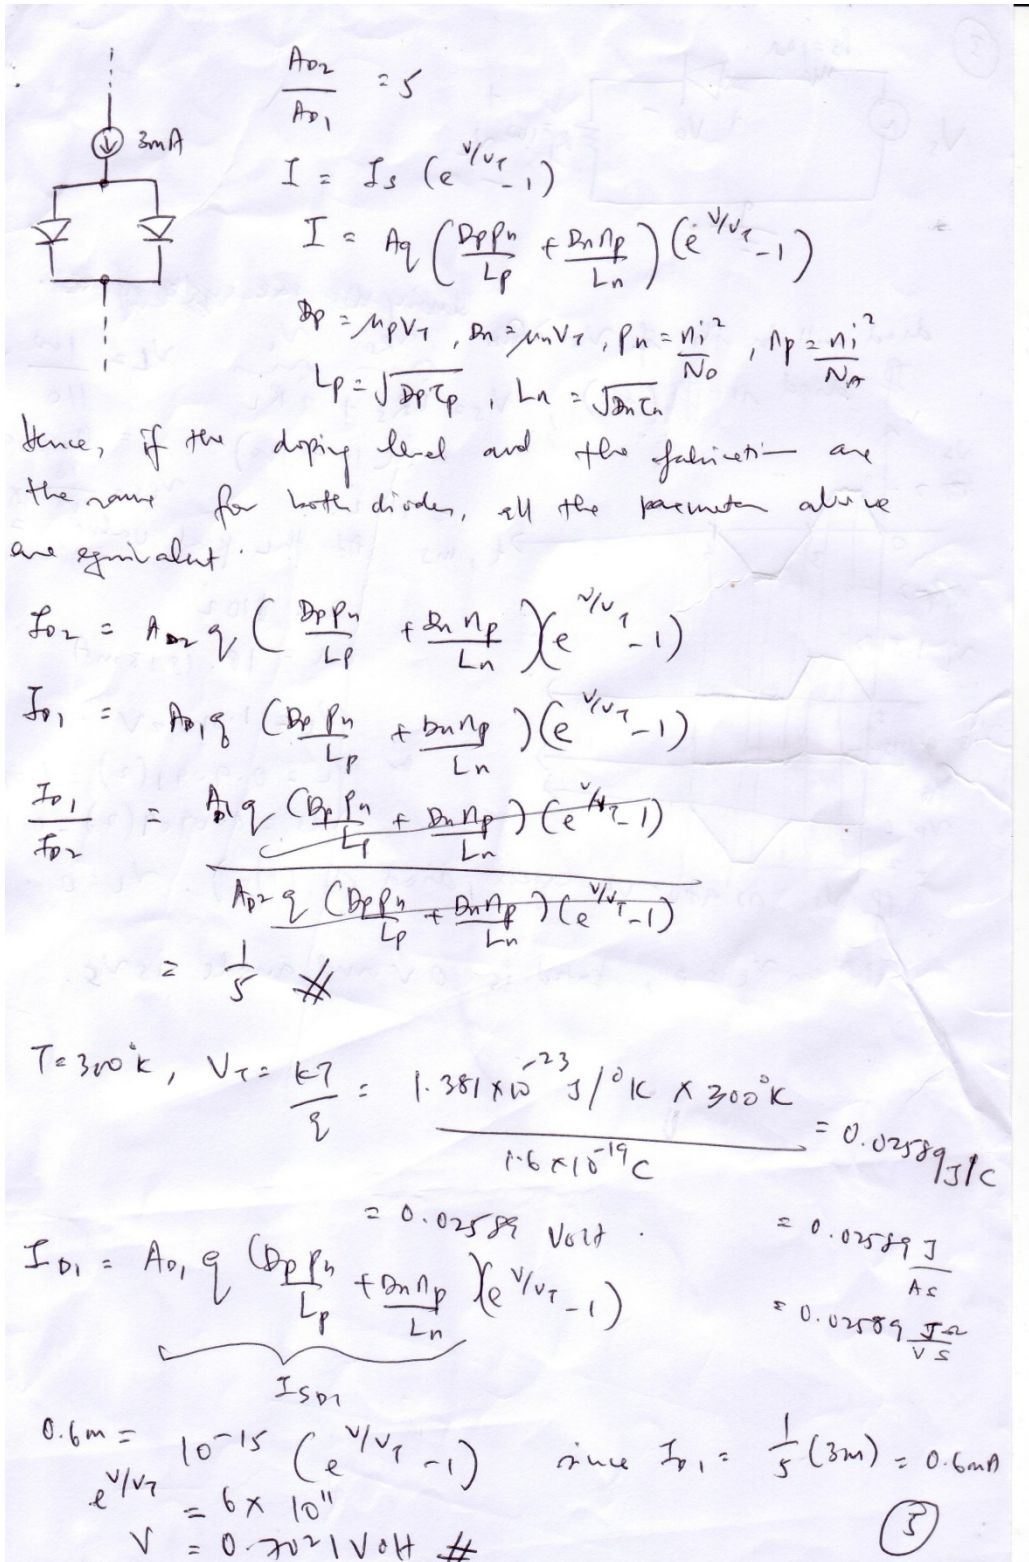 A_D2 / A_D1 = 5
3mA
I = Is (e^{V/V_T} - 1)
I = Aq (DpPn/Lp + Dnnp/Ln) (e^{V/V_T} - 1)
Dp = μpV_T , Dn = μnV_T , Pn = ni²/N_D , np = ni²/N_A
Lp = √Dpτp , Ln = √Dnτn
Hence, if the doping level and the fabrication are
the same for both diodes, all the parameter above
are equivalent.
I_D2 = A_D2 q (DpPn/Lp + Dnnp/Ln)(e^{V/V_T} - 1)
I_D1 = A_D1 q (DpPn/Lp + Dnnp/Ln)(e^{V/V_T} - 1)
I_D1 / I_D2 = A_D1 q (DpPn/Lp + Dnnp/Ln)(e^{V/V_T} - 1)
A_D2 q (DpPn/Lp + Dnnp/Ln)(e^{V/V_T} - 1)
= 1/5 #
T = 300°K, V_T = kT/q = 1.381 x 10^{-23} J/°K x 300°K / 1.6 x 10^{-19} C = 0.02589 J/C
= 0.02589 Volt . = 0.02589 J/As
I_D1 = A_D1 q (DpPn/Lp + Dnnp/Ln)(e^{V/V_T} - 1)
= 0.02589 JΩ/VS
I_SD1
0.6m = 10^{-15} (e^{V/V_T} - 1) since I_D1 = 1/5 (3m) = 0.6mA
e^{V/V_T} = 6 x 10^{11}
V = 0.7021 Volt #
3